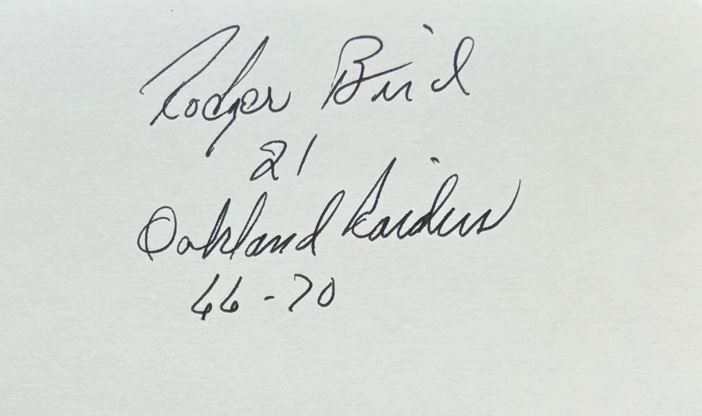 Rodger Bird
21
Oakland Raiders
66-70